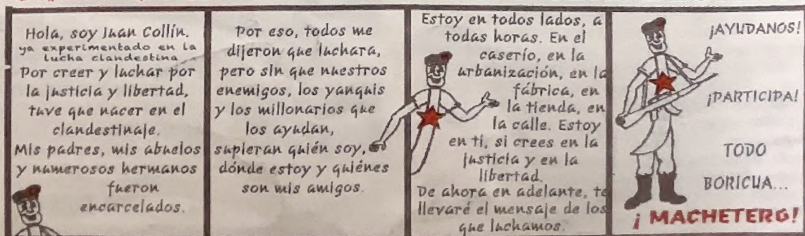 Hola, soy Juan Collín.
ya experimentado en la
lucha clandestina
Por creer y luchar por
la justicia y libertad,
tuve que nacer en el
clandestinaje.
Mis padres, mis abuelos
y numerosos hermanos
fueron
encarcelados.
Por eso, todos me
dijeron que luchara,
pero sin que nuestros
enemigos, los yanquis
y los millonarios que
los ayudan,
supieran quién soy,
dónde estoy y quiénes
son mis amigos.
Estoy en todos lados, a
todas horas. En el
caserío, en la
urbanización, en la
fábrica, en
la tienda, en
la calle. Estoy
en ti, si crees en la
justicia y en la
libertad.
De ahora en adelante, te
llevaré el mensaje de los
que luchamos.
¡AYUDANOS!
¡PARTICIPA!
TODO
BORICUA...
¡ MACHETERO!